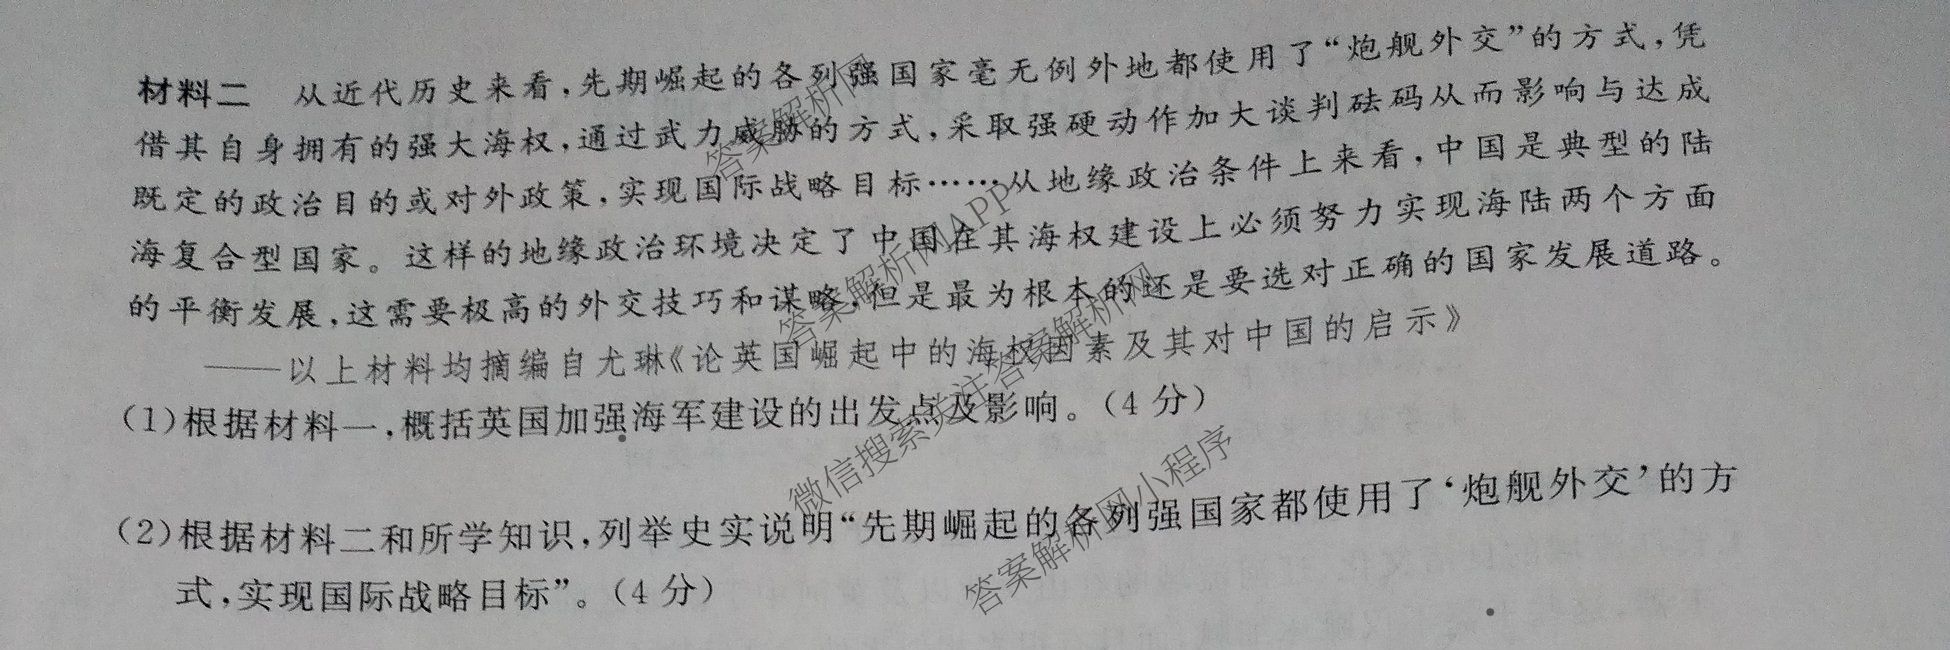 材料二 从近代历史来看,先期崛起的各列强国家毫无例外地都使用了“炮舰外交”的方式,凭
借其自身拥有的强大海权,通过武力威胁的方式,采取强硬动作加大谈判砝码从而影响与达成
既定的政治目的或对外政策,实现国际战略目标……从地缘政治条件上来看,中国是典型的陆
海复合型国家。这样的地缘政治环境决定了中国在其海权建设上必须努力实现海陆两个方面
的平衡发展,这需要极高的外交技巧和谋略,但是最为根本的还是要选对正确的国家发展道路。
——以上材料均摘编自尤琳《论英国崛起中的海权因素及其对中国的启示》
(1)根据材料一,概括英国加强海军建设的出发点及影响。(4分)
(2)根据材料二和所学知识,列举史实说明“先期崛起的各列强国家都使用了‘炮舰外交’的方
式,实现国际战略目标”。(4分)
答案解析网
答案解析网APP
微信搜索关注答案解析网
答案解析网小程序